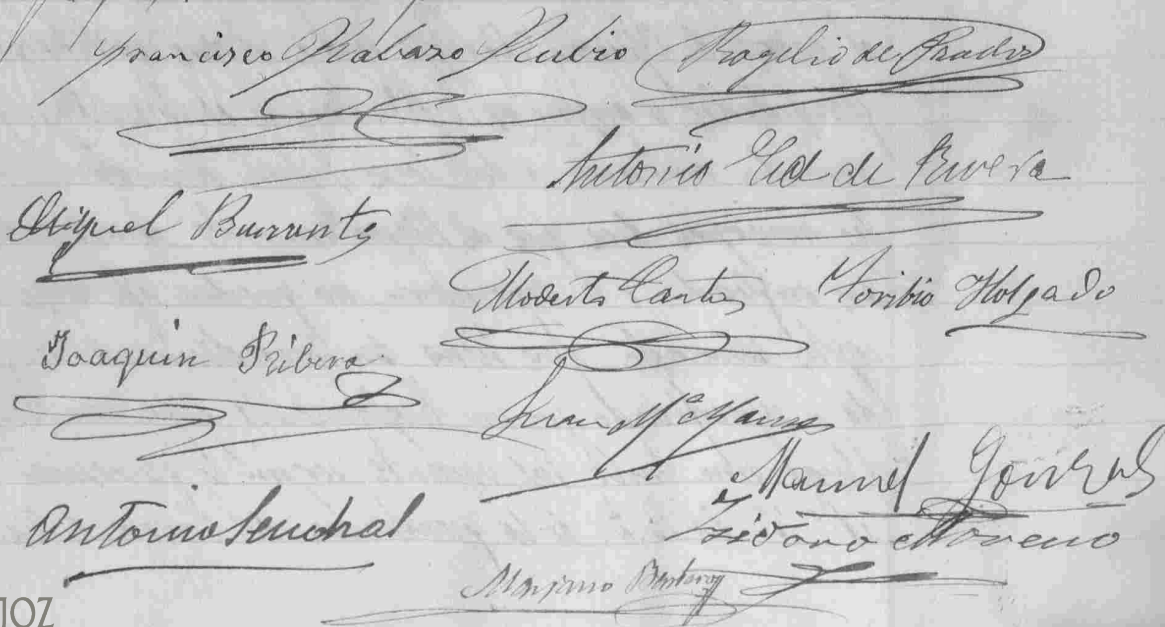 Francisco Rabazo Rubio Rogelio de Prado
Antonio Cid de Rivera
Miguel Barrantes
Modesto Cantos Toribio Holgado
Joaquin Ribera
Juan Mª
Manuel Gonzal
Antonio Sendral
Isidoro Moreno
Mariano
JOZ